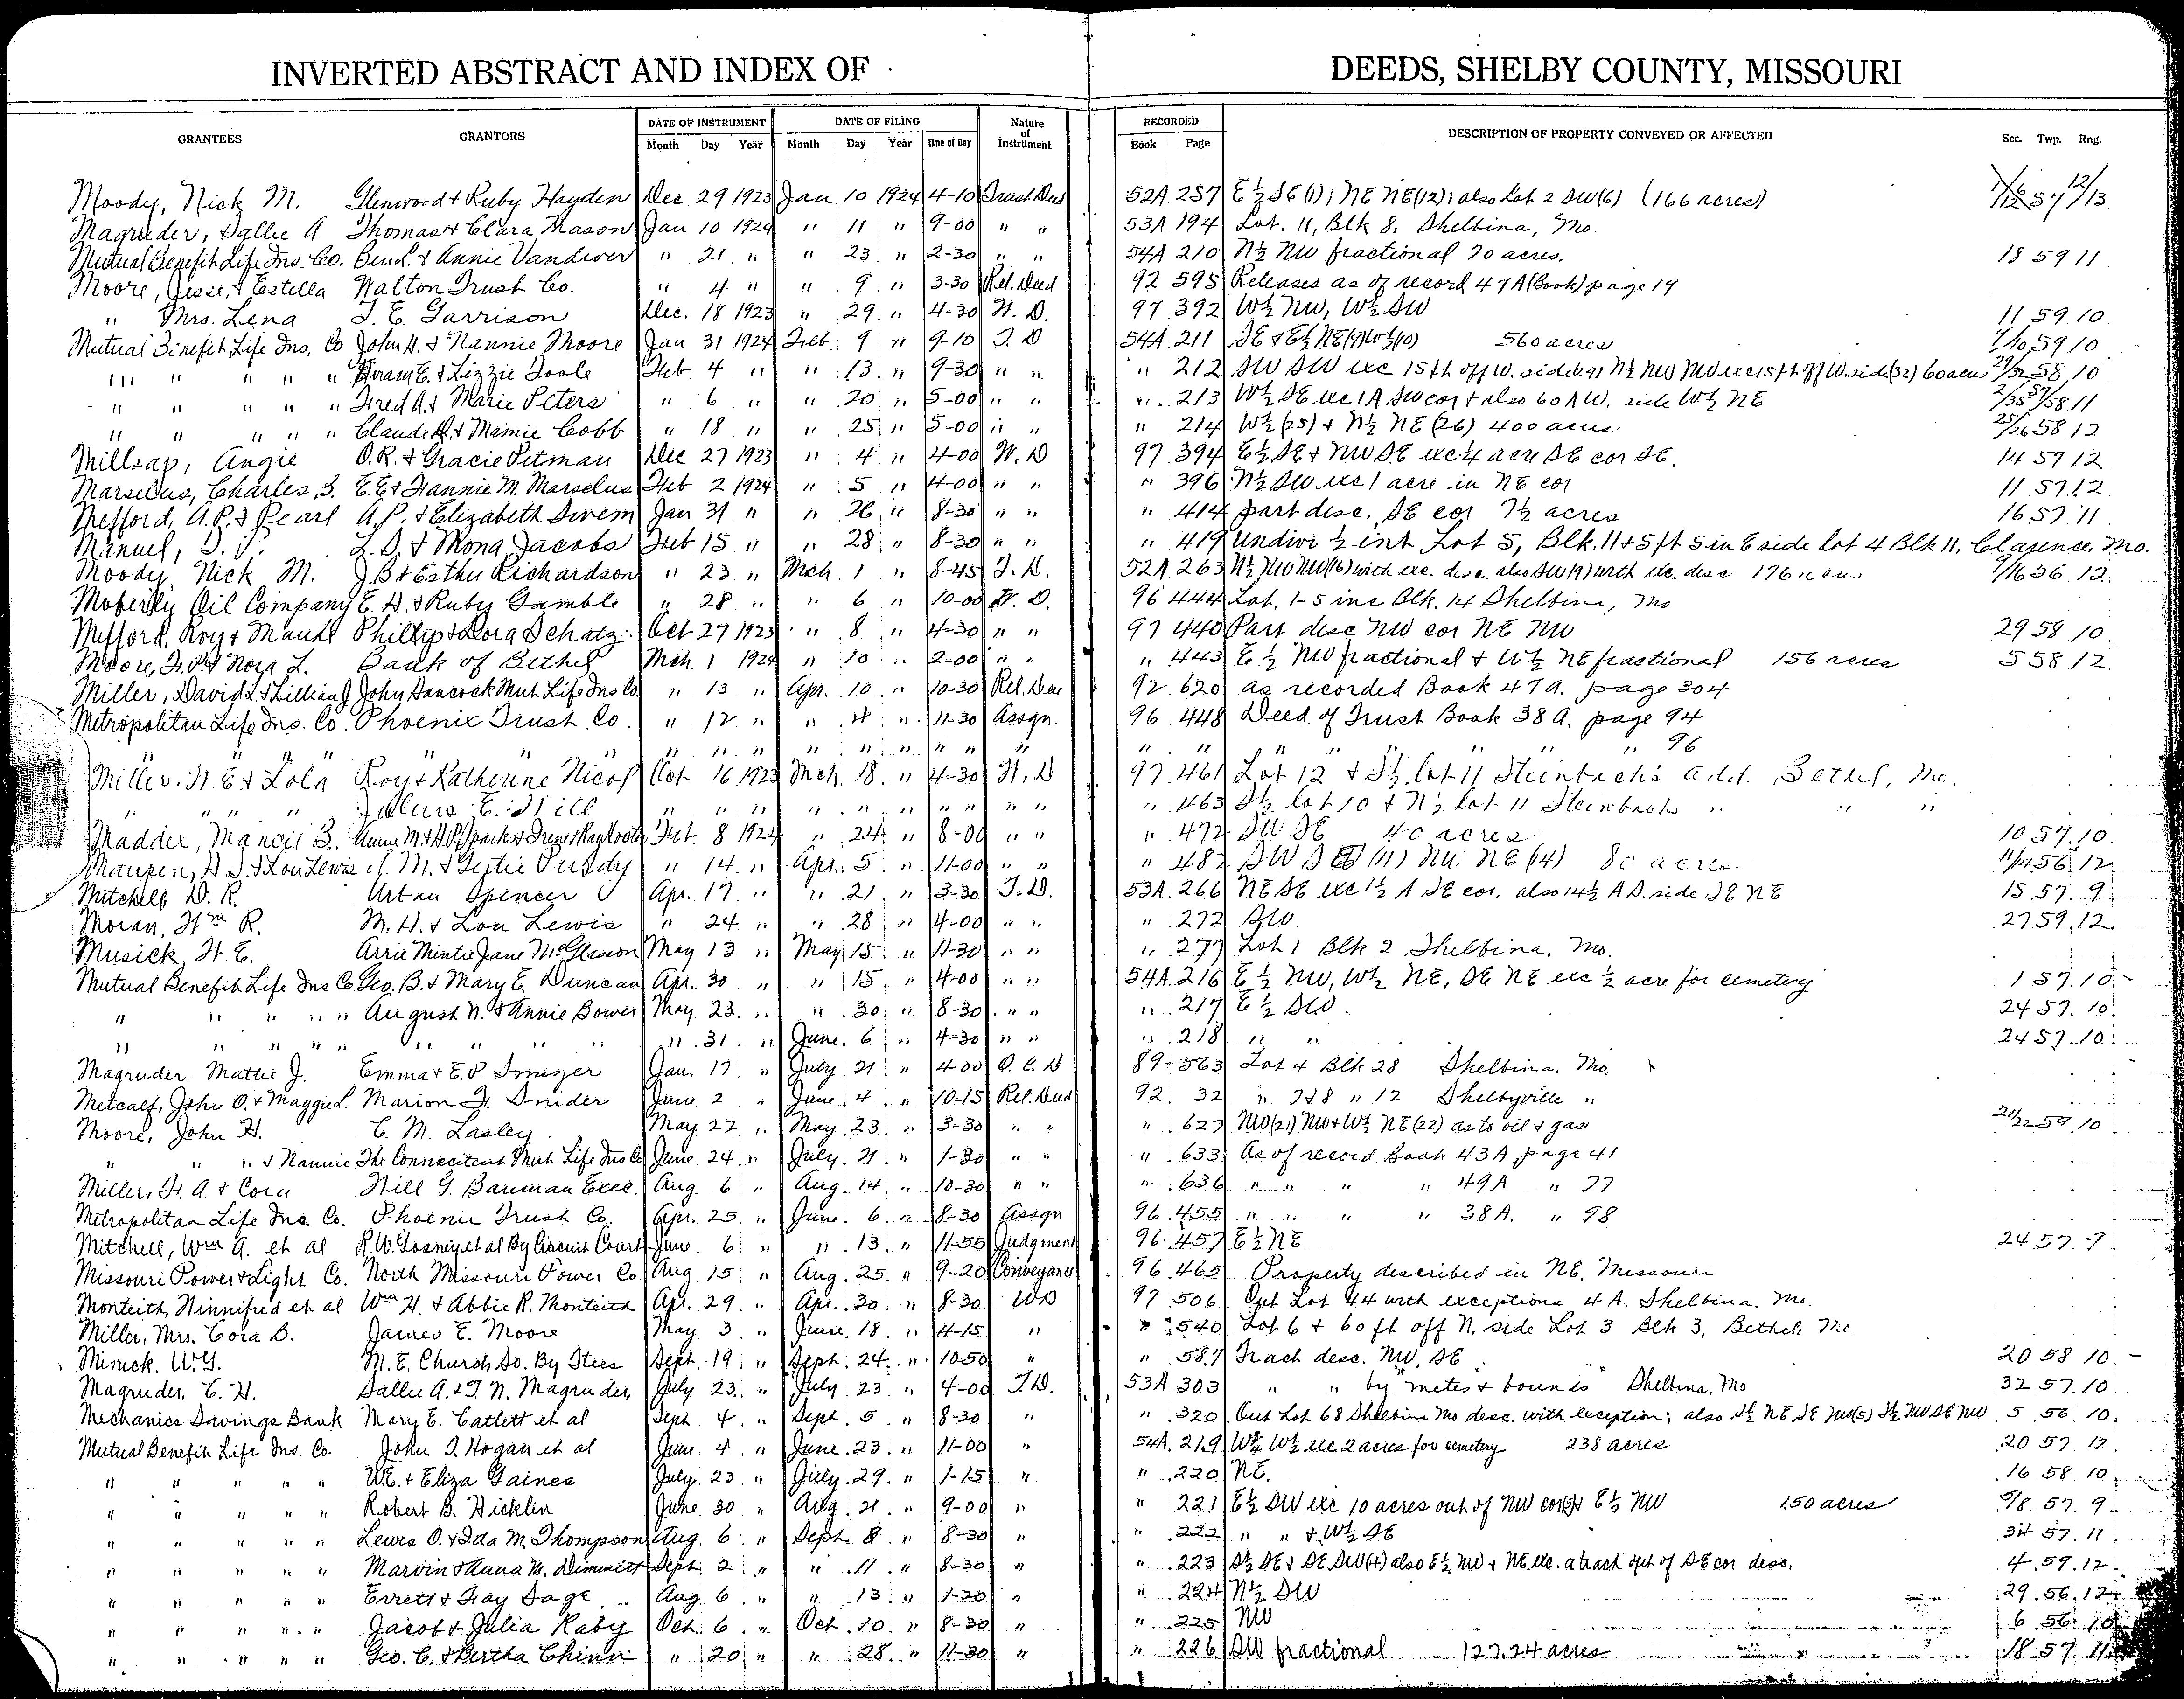 INVERTED ABSTRACT AND INDEX OF DEEDS, SHELBY COUNTY, MISSOURI
GRANTEES GRANTORS DATE OF INSTRUMENT DATE OF FILING Nature of Instrument RECORDED DESCRIPTION OF PROPERTY CONVEYED OR AFFECTED Sec. Twp. Rng.
Month Day Year Month Day Year Time of Day Book Page
Moody, Nick M. Glenwood & Ruby Hayden Dec 29 1923 Jan 10 1924 4-10 Trust Deed 52A 257 E ½ SE (1); NE NE (12); also Lot 2 SW (6) (166 acres)
Magruder, Sallie A Thomas & Clara Mason Jan 10 1924 " 11 " 9-00 " " 53A 194 Lot. 11, Blk 8, Shelbina, Mo
Mutual Benefit Life Ins. Co. Ben L. & Annie Vandiver " 21 " " 23 " 2-30 " " 54A 210 N½ NW fractional 70 acres. 18 59 11
Moore, Jesse, & Estella Walton Trust Co. " 4 " " 9 " 3-30 Rel. Deed 92 595 Releases as of record 47A (Book) page 19
" Mrs. Lena T. E. Garrison Dec. 18 1923 " 29 " 4-30 W. D. 97 392 W½ NW, W½ SW 11 59 10
Mutual Benefit Life Ins. Co John H. & Nannie Moore Jan 31 1924 Feb. 9 " 9-10 T. D 54A 211 SE & E½ NE (9) W½ (10) 560 acres 9/10 59 10
" " " " " Hiram E. & Lizzie Toole Feb 4 " " 13 " 9-30 " " " 212 SW SW exc 15 ft off W. side (29) N½ NW NW exc 15 ft off W. side (32) 60 acres 29/32 58 10
" " " " " Fred A. & Marie Peters " 6 " " 20 " 5-00 " " " 213 W½ SE exc 1A SW cor & also 60 A W. side W½ NE
" " " " " Claude R. & Mamie Cobb " 18 " " 25 " 5-00 " " " 214 W½ (25) & N½ NE (26) 400 acres. 25/26 58 12
Millsap, Angie O. R. & Gracie Pitman Dec 27 1923 " 4 " 4-00 W. D 97 394 E½ SE & NW SE exc ¼ acre SE cor SE. 14 57 12
Marselus, Charles, S. E. E & Fannie M. Marselus Feb 2 1924 " 5 " 4-00 " " " 396 N½ SW exc 1 acre in NE cor 11 57 12
Mefford, A. P. & Pearl A. P. & Elizabeth Swem Jan 31 " " 26 " 8-30 " " " 414 part desc. SE cor 7½ acres 16 57 11
Manuel, L. D. & Mona Jacobs Feb 15 " " 28 " 8-30 " " " 419 Undivi ½ int Lot 5, Blk. 11 & 5 ft 5 in E side lot 4 Blk 11, Clarence, Mo.
Moody, Nick M. J. B & Esther Richardson " 23 " Mch. 1 " 8-45 T. D. 52A 263 N½ NW NW (16) with exc. desc. also SW (9) with exc. desc 176 acres 9/16 56 12
Moberly Oil Company E. H. & Ruby Gamble " 28 " " 6 " 10-00 W. D. 96 444 Lot. 1-5 inc Blk. 14 Shelbina, Mo
Mefford, Roy & Maude Phillip & Dora Schatz Oct 27 1923 " 8 " 4-30 " " 97 440 Part desc NW cor NE NW 29 58 10
Moore, F. P. & Nora L. Bank of Bethel Mch. 1 1924 " 10 " 2-00 " " " 443 E ½ NW fractional & W½ NE fractional 156 acres 5 58 12
Miller, David L. & Lillian J John Hancock Mut. Life Ins Co. " 13 " Apr. 10 " 10-30 Rel. Dee 92 620 as recorded Book 47A. page 304
Metropolitan Life Ins. Co. Phoenix Trust Co. " 12 " " 4 " 11-30 Assgn. 96 448 Deed of Trust Book 38 A. page 94
" " " " " " " " " " " " " " " " " " " " " 96
Miller, W. E. & Lola Roy & Katherine Nicol Oct 16 1923 Mch. 18 " 4-30 W. D 97 461 Lot 12 & S½ lot 11 Steinbach's add. Bethel, Mo.
" " " " Julius E. Will " " " " " " " " " " " 463 S½ lot 10 & N½ Lot 11 Steinbachs " " "
Madder, Mancil B. Feb. 8 1924 " 24 " 8-00 " " " 472 SW SE 40 acres 10 57 10
Maupin, H. S. & Lou Lewis J. M. & Gertie Purdy " 14 " Apr. 5 " 11-00 " " " 482 SW SE (11) NW NE (14) 80 acres 11/14 56 12
Mitchell D. R. Urban Spencer Apr. 17 " " 21 " 3-30 T. D. 53A 266 NE SE exc 1½ A SE cor. also 14½ A S. side SE NE 15 57 9
Moran, Wm R. M. H. & Lou Lewis " 24 " " 28 " 4-00 " " " 272 SW 27 59 12
Musick, W. E. Arrie Mintie Jane McGlasson May 13 " May 15 " 11-30 " " " 277 Lot 1 Blk 2 Shelbina, Mo.
Mutual Benefit Life Ins Co Geo. B. & Mary E. Duncan Apr. 30 " " 15 " 4-00 " " 54A 216 E ½ NW, W½ NE, SE NE exc ½ acre for cemetery 1 57 10
" " " " " August N. & Annie Bower May 23 " " 30 " 8-30 " " " 217 E ½ SW 24 57 10
" " " " " " " " " " 31 " June 6 " 4-30 " " " 218 " " 24 57 10
Magruder, Mattie J. Emma & E. P. Irmiger Jan. 17 " July 21 " 4 00 Q. C. D 89 563 Lot 4 Blk 28 Shelbina. Mo.
Metcalf, John O. & Maggie L. Marion F. Snider June 2 " June 4 " 10-15 Rel. Deed 92 32 " 7&8 " 12 Shelbyville "
Moore, John H. C. M. Lasley May 22 " May 23 " 3-30 " " " 627 NW (21) NW & W½ NE (22) as to oil & gas 21/22 59 10
" " " & Nannie The Connecticut Mut. Life Ins Co June 24 " July 21 " 1-30 " " " 633 As of record Book 43 A page 41
Miller, W. A. & Cora Will G. Bauman Exec. Aug. 6 " Aug. 14 " 10-30 " " " 636 " " " " 49A " 77
Metropolitan Life Ins. Co. Phoenix Trust Co. Apr. 25 " June 6 " 8-30 Assgn 96 455 " " " " 38A. " 98
Mitchell, Wm A. et al R. W. Gosney et al By Circuit Court June 6 " " 13 " 11-55 Judgment 96 457 E½ NE 24 57 9
Missouri Power & Light Co. North Missouri Power Co. Aug 15 " Aug. 25 " 9-20 Conveyance 96 465 Property described in NE. Missouri
Monteith, Winnifred et al Wm H. & Abbie R. Monteith Apr. 29 " Apr. 30 " 8-30 WD 97 506 Out Lot 44 with exceptions 4 A. Shelbina. Mo.
Miller, Mrs. Cora B. James E. Moore May 3 " June 18 " 4-15 " " 540 Lot 6 & 60 ft off N. side Lot 3 Blk 3, Bethel, Mo
Minick. W. G. M. E. Church So. By Stees Sept. 19 " Sept. 24 " 10-50 " " 587 Trach desc. NW. SE 20 58 10
Magruder, C. H. Sallie A. & T. N. Magruder, July 23 " July 23 " 4-00 T. D. 53A 303 " " by "metes & bounds" Shelbina, Mo 32 57 10
Mechanics Savings Bank Mary E. Catlett et al Sept 4 " Sept. 5 " 8-30 " " 320 Out Lot 68 Shelbina Mo desc. with exception; also S½ NE SE NW (5) S½ NW SE NW 5 56 10
Mutual Benefit Life Ins. Co. John T. Hogan et al June 4 " June 23 " 11-00 " 54A 219 W½ W½ exc 2 acres for cemetery 238 acres 20 57 12
" " " " " W. E. & Eliza Gaines July 23 " July 29 " 1-15 " " 220 NE. 16 58 10
" " " " " Robert B. Hicklin June 30 " Aug 21 " 9-00 " " 221 E½ SW exc 10 acres out of NW cor (5) & E½ NW 150 acres 5/8 57 9
" " " " " Lewis O. & Ida M. Thompson Aug. 6 " Sept. 8 " 8-30 " " 222 " " & W½ SE 34 57 11
" " " " " Marvin & Anna M. Dimmitt Sept. 2 " " 11 " 8-30 " " 223 S½ SE & SE SW (4) also E½ NW & NE. exc. a trach out of SE cor desc. 4 59 12
" " " " " Errett & Fay Sage Aug 6 " " 13 " 1-20 " " 224 N½ SW 29 56 12
" " " " " Jacob & Julia Raby Oct. 6 " Oct 10 " 8-30 " " 225 NW 6 56 10
" " " " " Geo. C. & Bertha Chinn " 20 " " 28 " 11-30 " " 226 SW fractional 127.24 acres 18 57 11